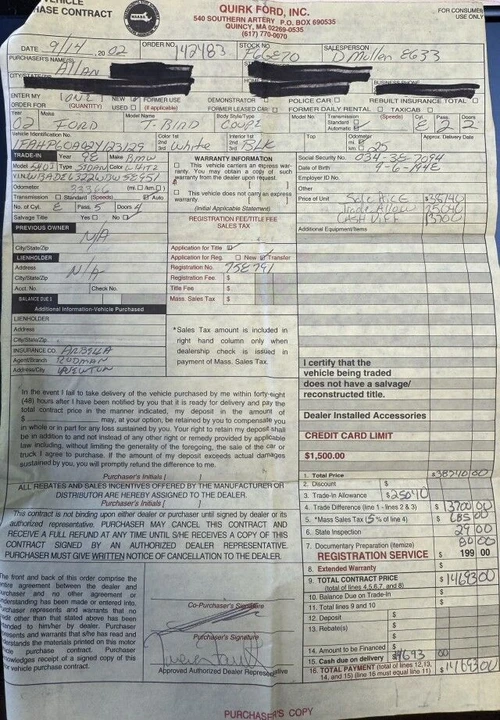 VEHICLE
PURCHASE CONTRACT
QUIRK FORD, INC.
540 SOUTHERN ARTERY P.O. BOX 690535
QUINCY, MA 02269-0535
(617) 770-0070
FOR CONSUMER
USE ONLY
DATE 9/14 20 02 ORDER NO. 42483 STOCK NO. SALESPERSON D Mullen E633
PURCHASER'S NAME(S) Allan
CITY/STATE/ZIP
ENTER MY
ORDER FOR (QUANTITY) NEW USED FORMER USE (if applicable) DEMONSTRATOR FORMER LEASED CAR POLICE CAR FORMER DAILY RENTAL TAXICAB REBUILT INSURANCE TOTAL
Year 02 Make FORD Model Name T-BIRD Body Style/Type COUPE Model No. Transmission Standard Automatic (Speeds) Cyl. 8 Doors 2
Vehicle Identification No. Color 1st White Interior 1st BLK Top Odometer 25 Approx. Delivery Date
TRADE-IN Year 98 Make BMW
Model 540I Type SDAN Color WHITE
V.I.N.
Odometer (mi.) (km.)
Transmission Standard (Speeds) Auto
No. of Cyl. 8 Pass. 5 Doors 4
Salvage Title Yes No
WARRANTY INFORMATION
This vehicle carries an express warranty. You may obtain a copy of such warranty from the dealer upon request.
This vehicle does not carry an express warranty.
(Initial Applicable Statement)
Social Security No.
Date of Birth
Employer ID No.
Other
Price of Unit Sale Price
Trade Allow
CASH Diff 13700
Additional Equipment/Items
REGISTRATION FEE/TITLE FEE
SALES TAX
PREVIOUS OWNER
N/A
City/State/Zip
LIENHOLDER
Address N/A
City/State/Zip
Acct. No. Check No.
BALANCE DUE $
Application for Title
Application for Reg. New Transfer
Registration No. 75E791
Registration Fee $
Title Fee $
Mass. Sales Tax $
Additional Information-Vehicle Purchased
LIENHOLDER
Address
City/State/Zip
INSURANCE CO. ARBELLA
Agent/Branch RODMAN
Address/City NEWTON
*Sales Tax amount is included in
right hand column only when
dealership check is issued in
payment of Mass. Sales Tax.
I certify that the
vehicle being traded
does not have a salvage/
reconstructed title.
Dealer Installed Accessories
CREDIT CARD LIMIT
$1,500.00
In the event I fail to take delivery of the vehicle purchased by me within forty-eight
(48) hours after I have been notified by you that it is ready for delivery and pay the
total contract price in the manner indicated, my deposit in the amount of
$ may, at your option, be retained by you to compensate you
in whole or in part for any loss sustained by you. Your right to retain my deposit shall
be in addition to and not instead of any other right or remedy provided by applicable
law including, without limiting the generality of the foregoing, the sale of the car or
truck I agree to purchase. If the amount of my deposit exceeds actual damages
sustained by you, you will promptly refund the difference to me.
Purchaser's Initials [
ALL REBATES AND SALES INCENTIVES OFFERED BY THE MANUFACTURER OR
DISTRIBUTOR ARE HEREBY ASSIGNED TO THE DEALER.
Purchaser's Initials [
This contract is not binding upon either dealer or purchaser until signed by dealer or its
authorized representative. PURCHASER MAY CANCEL THIS CONTRACT AND
RECEIVE A FULL REFUND AT ANY TIME UNTIL S/HE RECEIVES A COPY OF THIS
CONTRACT SIGNED BY AN AUTHORIZED DEALER REPRESENTATIVE.
PURCHASER MUST GIVE WRITTEN NOTICE OF CANCELLATION TO THE DEALER.
1. Total Price $ 38740 00
2. Discount $
3. Trade-In Allowance $ 25040
4. Trade Difference (line 1 - lines 2 & 3) $ 13700 00
5. *Mass Sales Tax (5% of line 4) $ 685 00
6. State Inspection 29 00
7. Documentary Preparation (itemize) 80 00
REGISTRATION SERVICE $ 199 00
8. Extended Warranty $
9. TOTAL CONTRACT PRICE
(total of lines 4,5,6,7, and 8) $ 14693 00
10. Balance Due on Trade-in $
11. Total lines 9 and 10 $
12. Deposit $
13. Rebate(s) $
14. Amount to be Financed $
15. Cash due on delivery $ 14693 00
16. TOTAL PAYMENT (total of lines 12,13,
14, and 15) (line 16 must equal line 11) $ 14693 00
The front and back of this order comprise the
entire agreement between the dealer and
Purchaser and no other agreement or
understanding has been made or entered into.
Purchaser represents and warrants that no
credit other than that stated above has been
extended to him/her by dealer. Purchaser
represents and warrants that s/he has read and
understands the materials printed on this motor
vehicle purchase contract. Purchaser
acknowledges receipt of a signed copy of this
motor vehicle purchase contract.
Co-Purchaser's Signature
Purchaser's Signature
Approved Authorized Dealer Representative
PURCHASER'S COPY